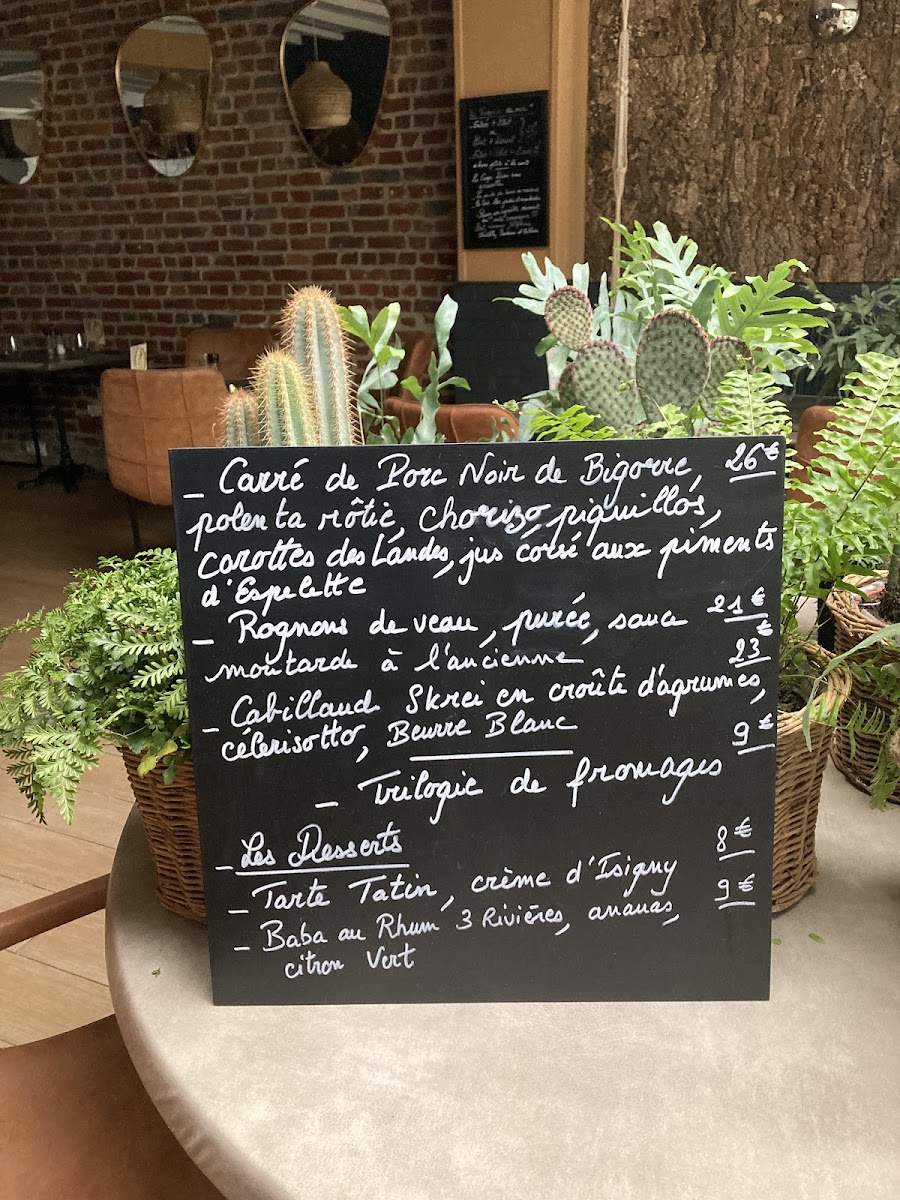 - Carré de Porc Noir de Bigorre 26€
polenta rôtie, chorizo, piquillos,
carottes des Landes, jus corsé aux piments
d'Espelette
- Rognons de veau, purée, sauce 21€
moutarde à l'ancienne 23€
- Cabillaud Skrei en croûte d'agrumes,
célerisotto, Beurre Blanc 9€
- Trilogie de fromages
- Les Desserts 8€
- Tarte Tatin, crème d'Isigny
- Baba au Rhum 3 Rivières, ananas, 9€
citron Vert